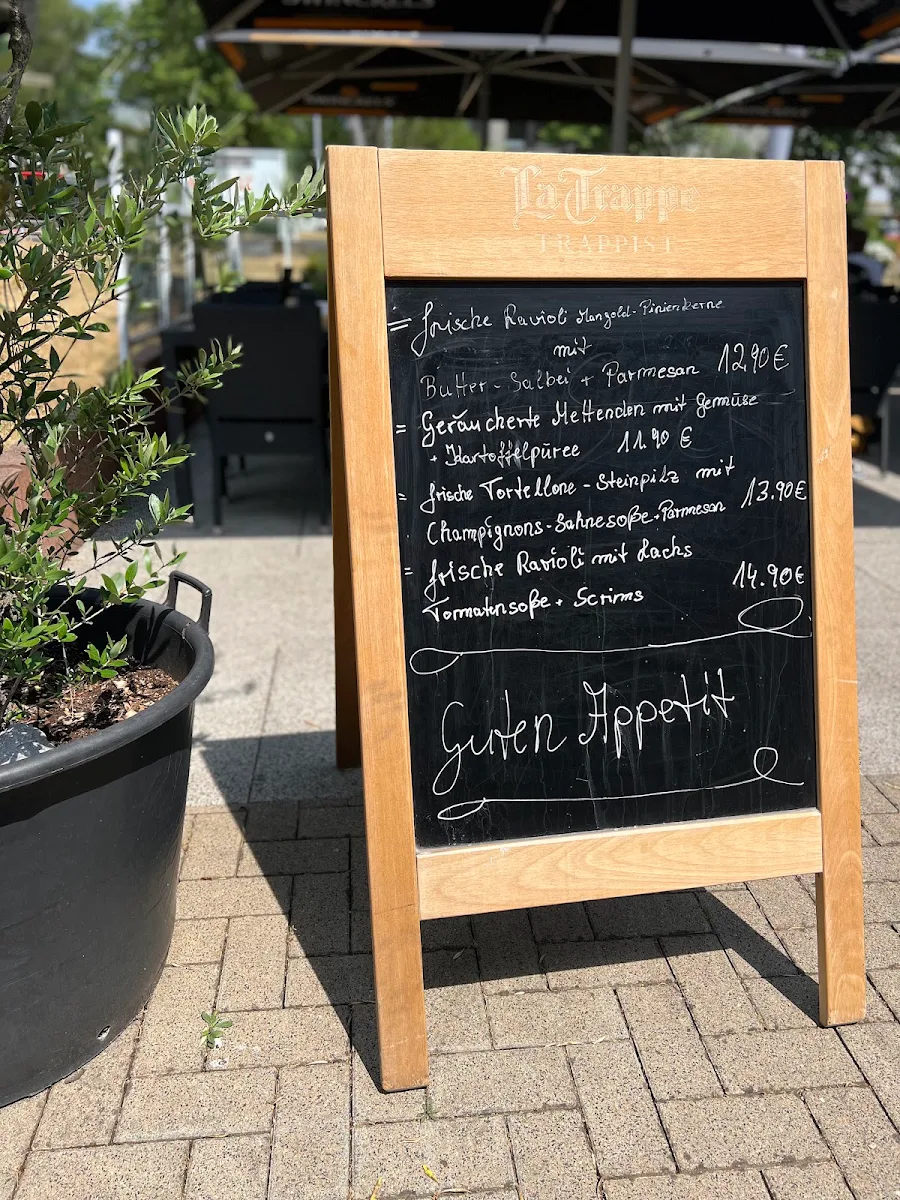 SWINCKELS
La Trappe
TRAPPIST
= frische Ravioli Mangold-Pinienkerne
mit
Butter-Salbei + Parmesan 12,90€
= Geräucherte Mettenden mit Gemüse
+ Kartoffelpüree 11.90 €
= frische Tortellone-Steinpilz mit
Champignons-Sahnesoße+Parmesan 13.90€
= frische Ravioli mit Lachs
Tormatensoße + Scrims 14.90€
Guten Appetit